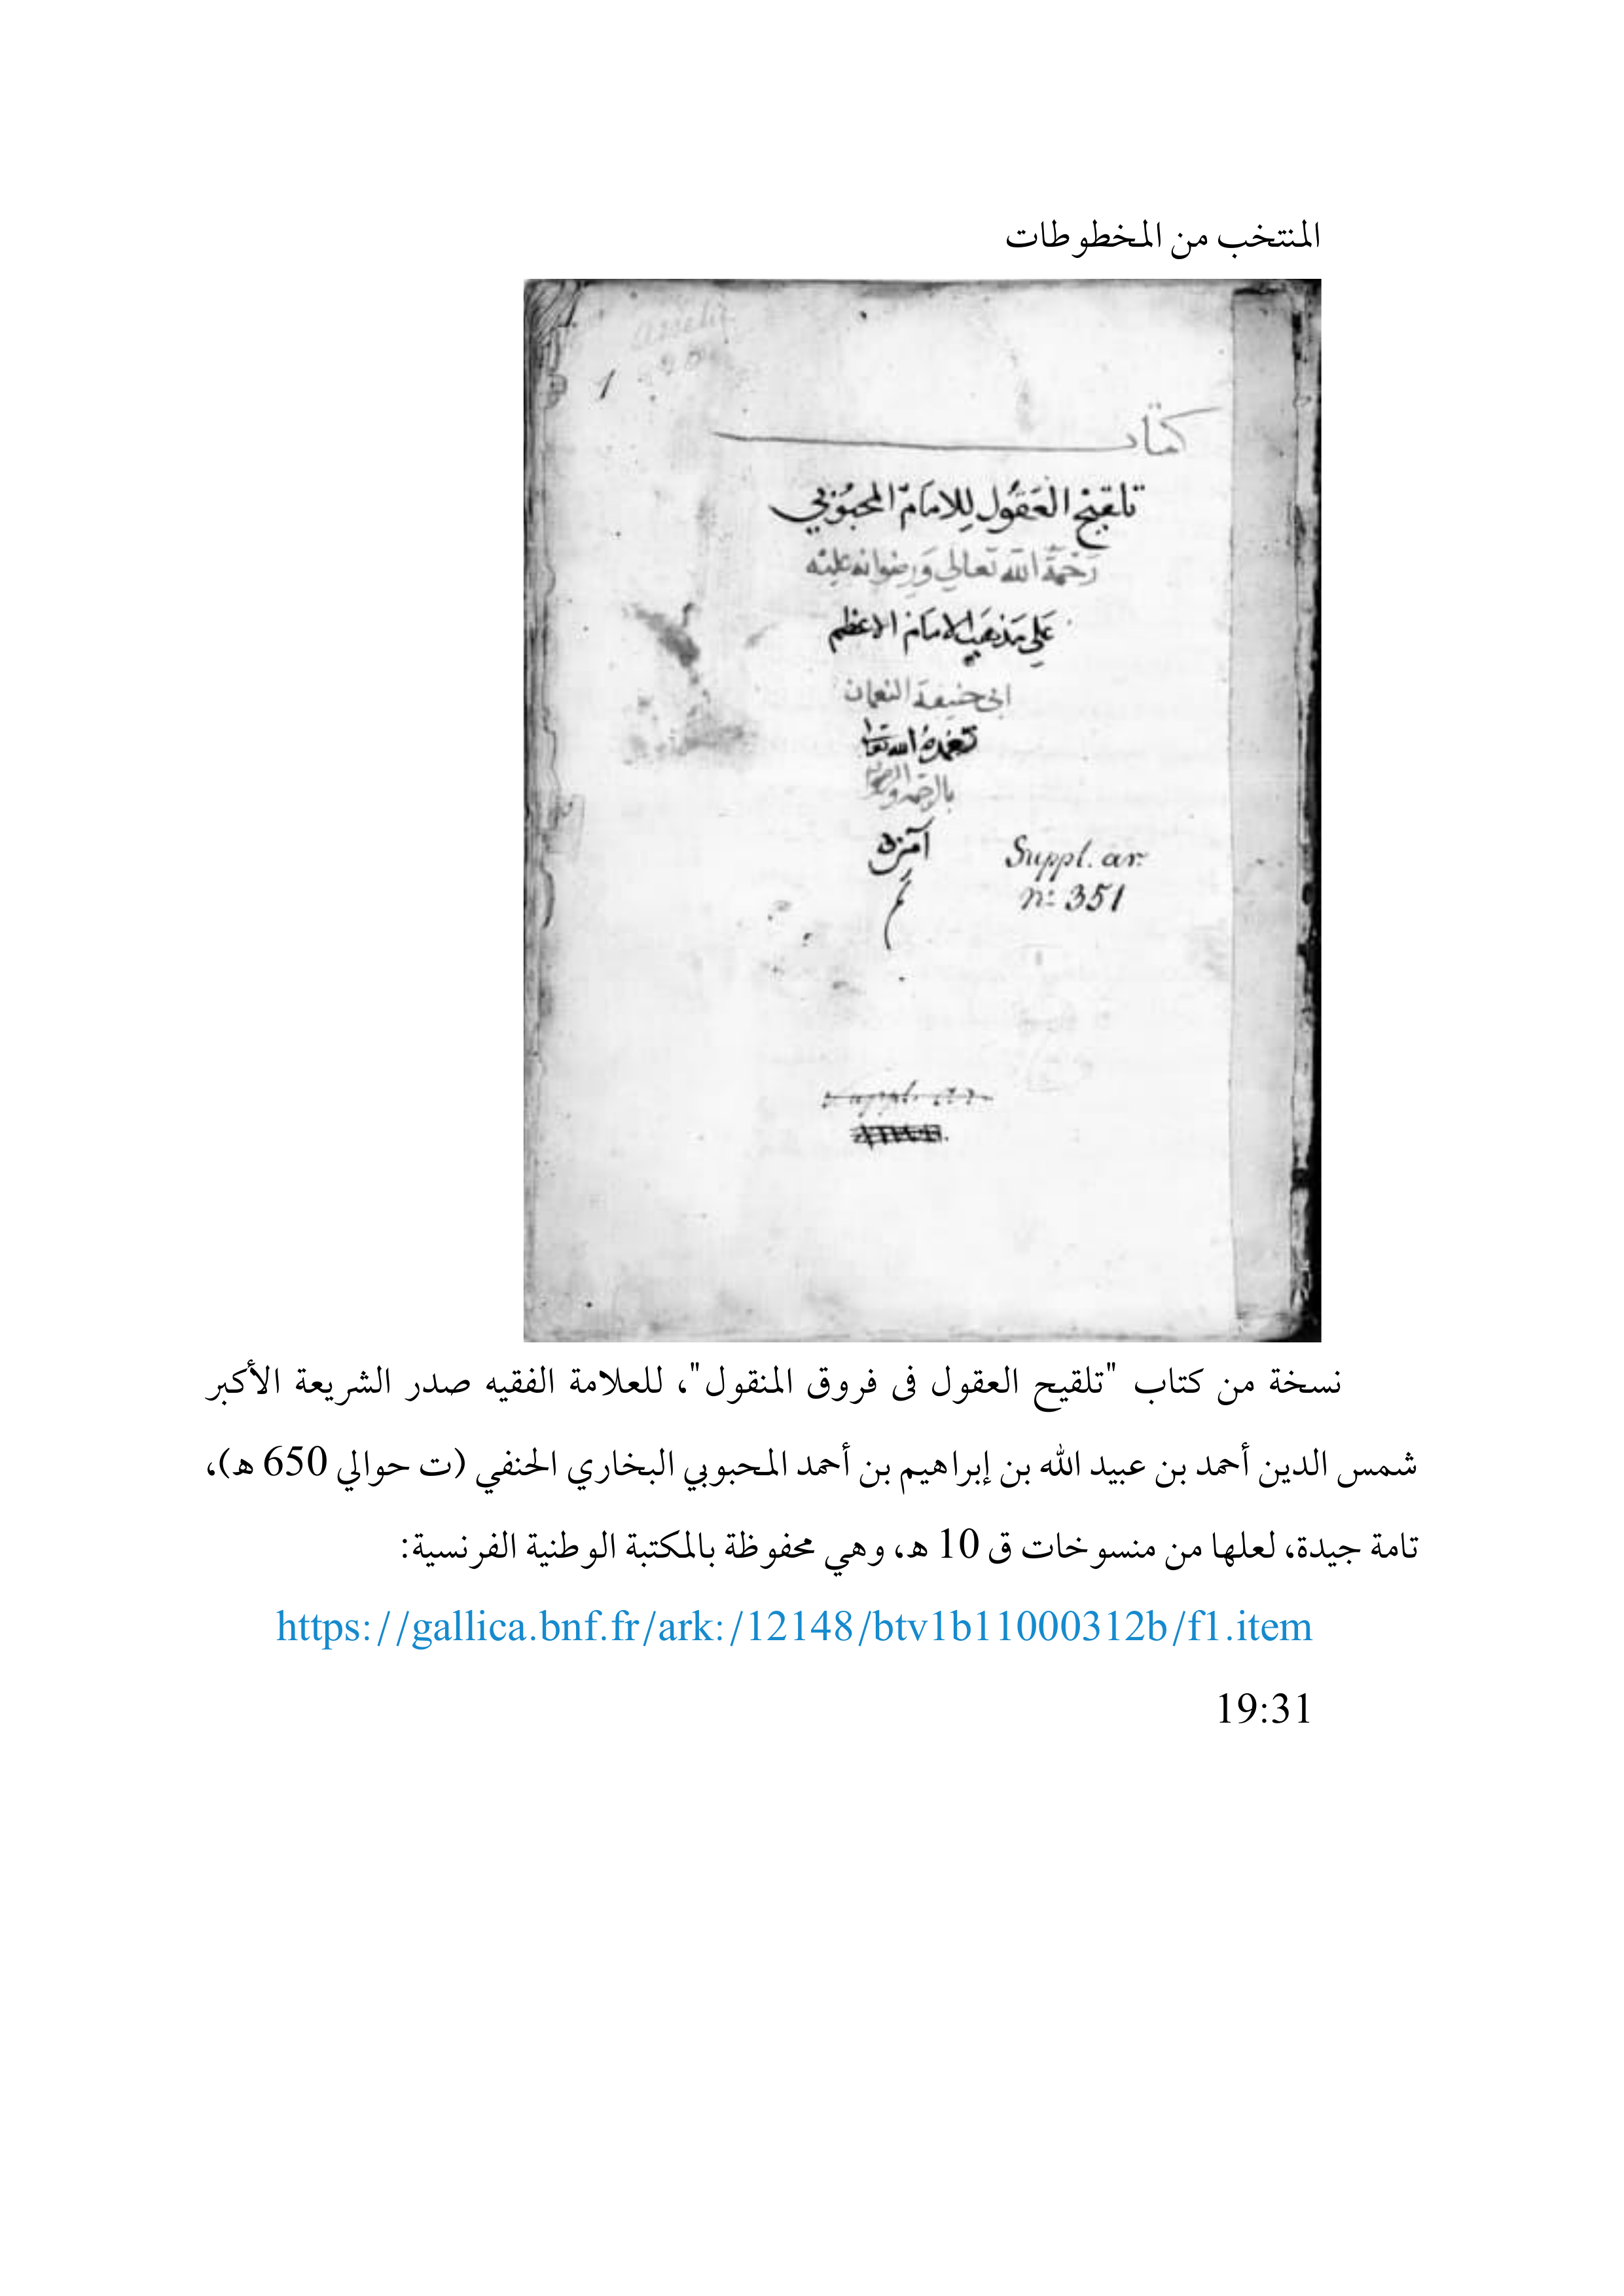 المنتخب من المخطوطات
1
كتاب
تلقيح العقول للامام المحبوبي
رحمة الله تعالي ورضوانه عليه
علي مذهب الامام الاعظم
ابي حنيفة النعمان
تغمده الله تعالى
بالرحمة والرضوان
آمين
تم
Suppl. ar.
n: 351
Suppl. ar.
نسخة من كتاب "تلقيح العقول فى فروق المنقول"، للعلامة الفقيه صدر الشريعة الأكبر
شمس الدين أحمد بن عبيد الله بن إبراهيم بن أحمد المحبوبي البخاري الحنفي (ت حوالي 650 هـ)،
تامة جيدة، لعلها من منسوخات ق 10 هـ، وهي محفوظة بالمكتبة الوطنية الفرنسية:
https://gallica.bnf.fr/ark:/12148/btv1b11000312b/f1.item
19:31